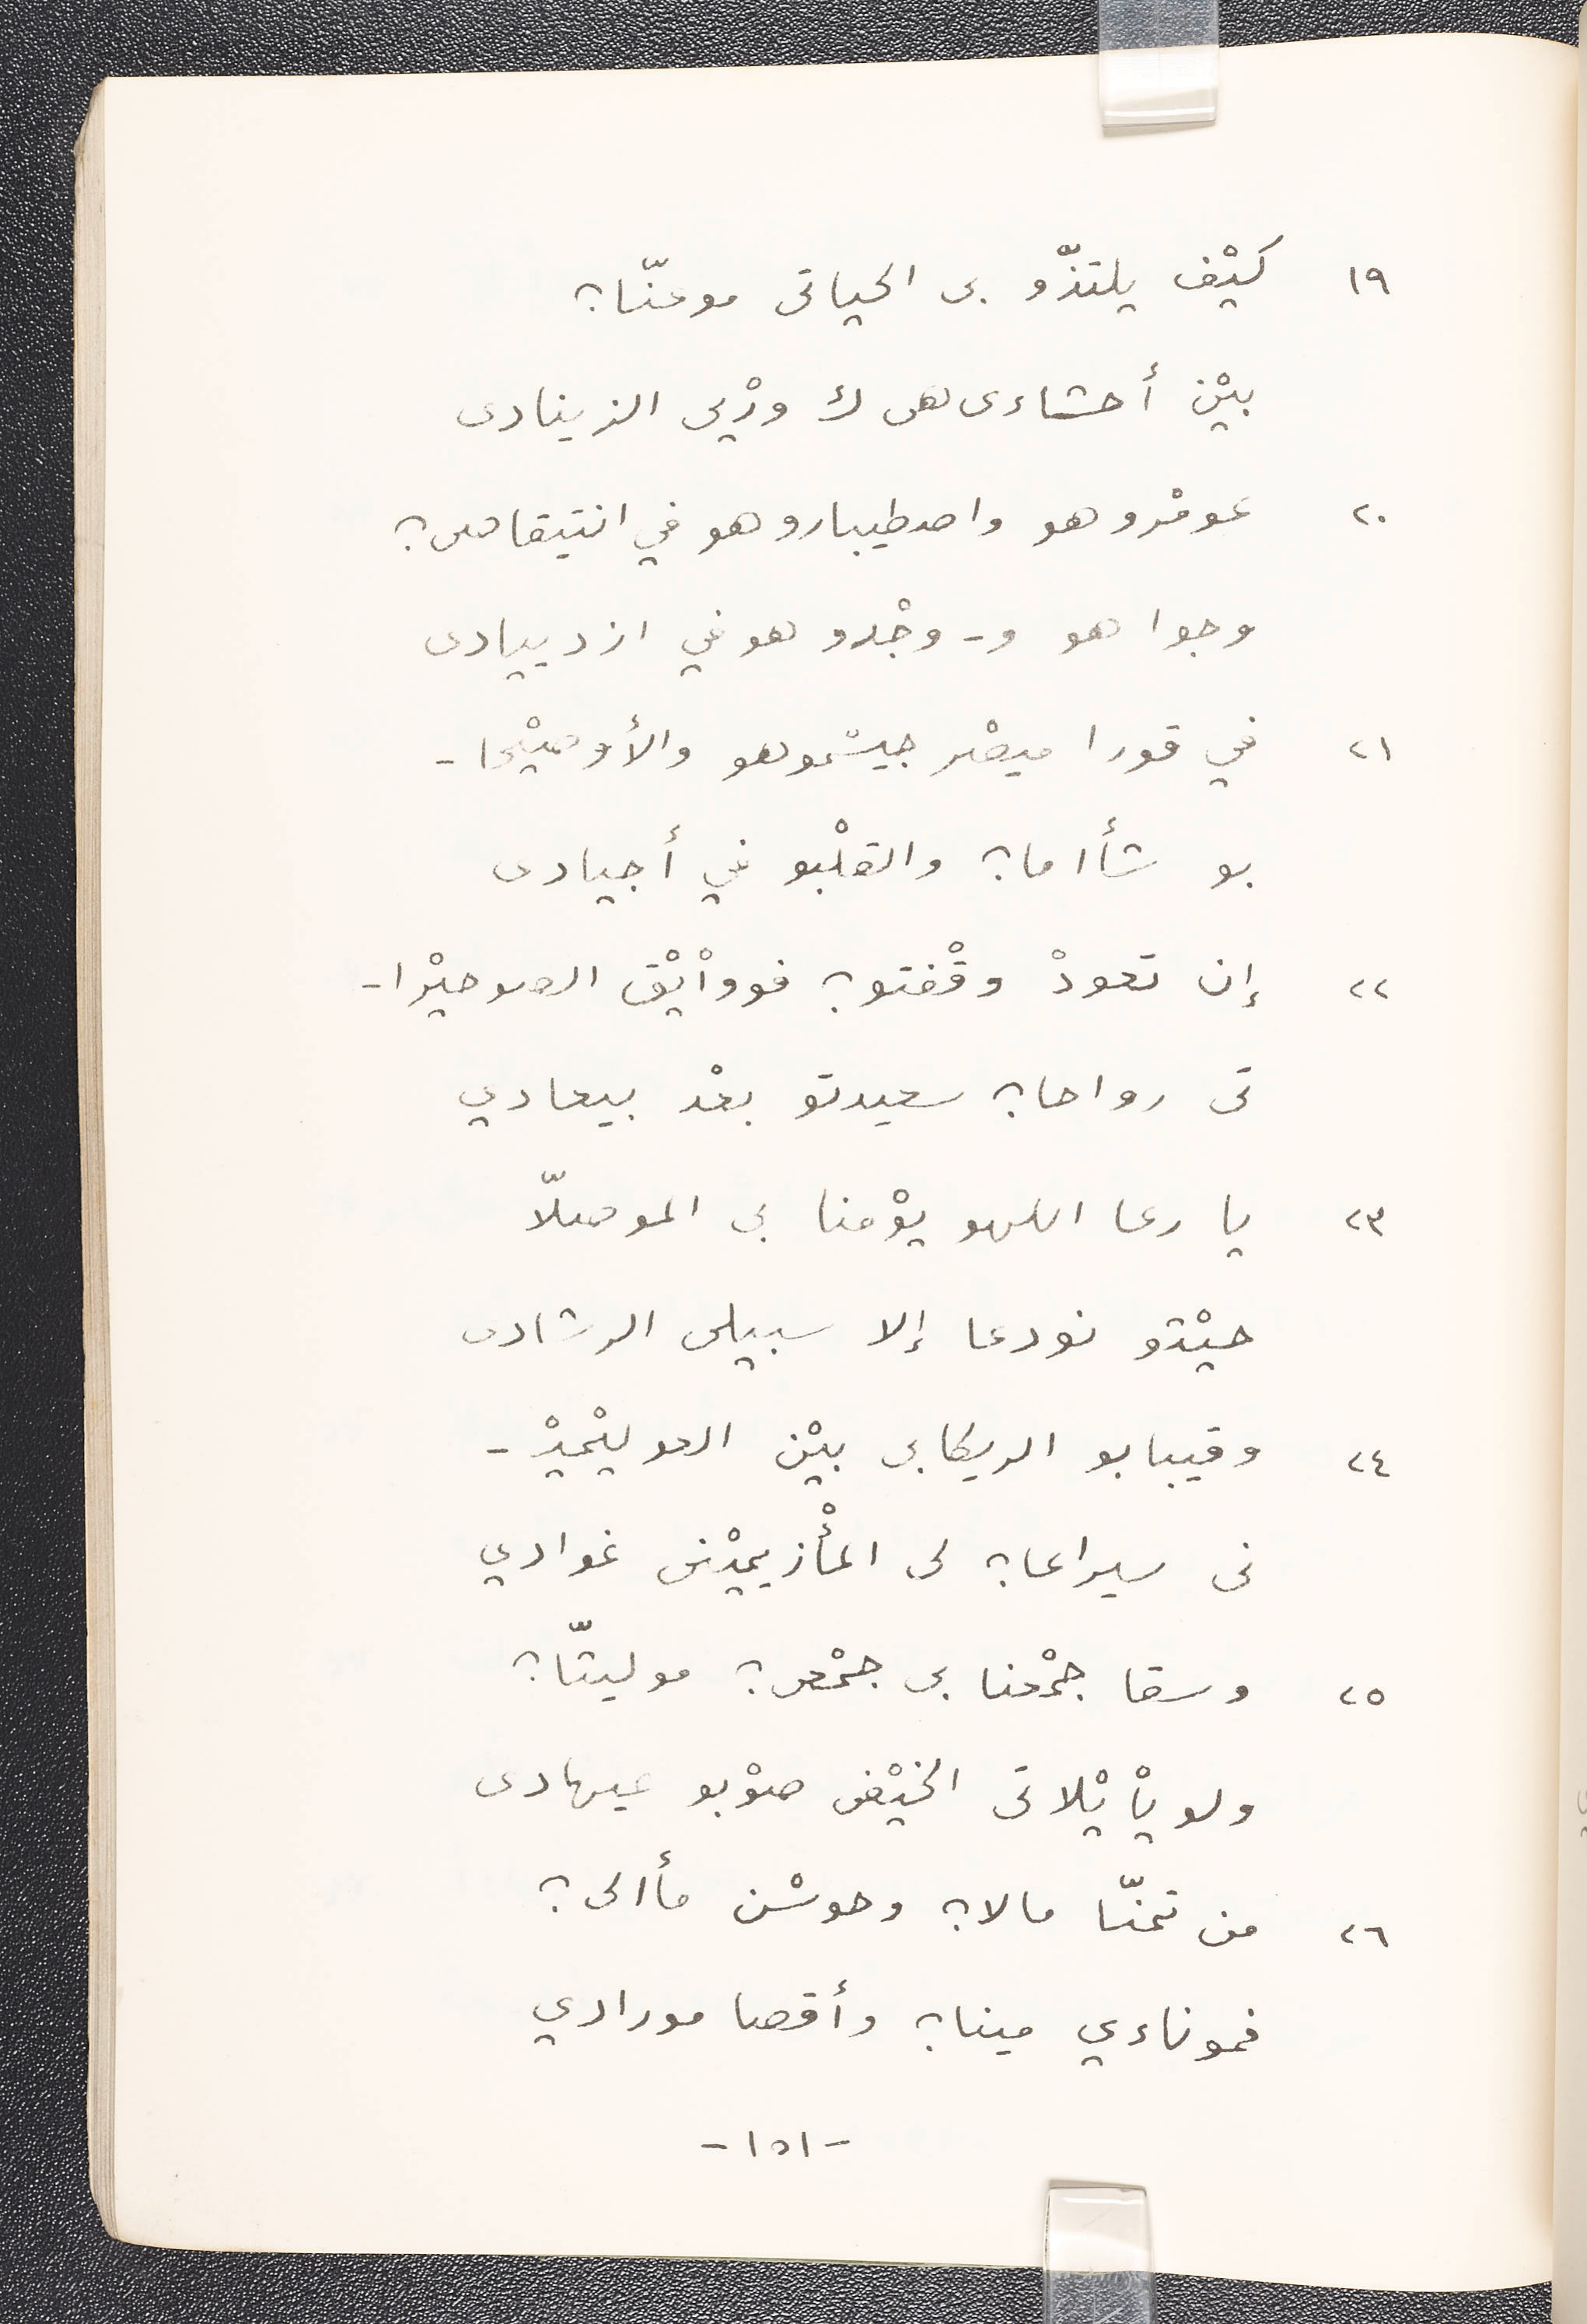 ١٩ كيْف يلتذّو بى الحياتى موعنّا؟
بيْن أحشاءى هى ك ورْيى الزينادى
٢٠ عومْروهو واصطيباروهو في انتيقاصى؟
وجوا هو و- وجْدو هو في ازديبادى
٢١ في قورا ميصْر جيسْموهو والأوصيْحا-
بو شأاما؟ والقلْبو في أجيادى
٢٢ إن تعودْ وقْفتو؟ فووأيْق الصوحيْرا-
تى رواحا؟ سعيدتو بعْد بيعادي
٢٣ يا رعا اللهو يوْمنا بى الموصلّا
حيْثو نودعا إلا سبيلى الرشادى
٢٤ وقيبابو الريكابى بيْن العوليْميْ-
نى سيراعا؟ لى المأْزيميْنى غوادي
٢٥ وسقا جمْعنا بى جمْعى؟ موليتّا؟
ولويأيْلاتى الخيْفى صوْبو عيهادى
٢٦ من تمنّا مالا؟ وحوسْن مأالى؟
فموناءي مينا؟ وأقصا مورادي
-١٥١-